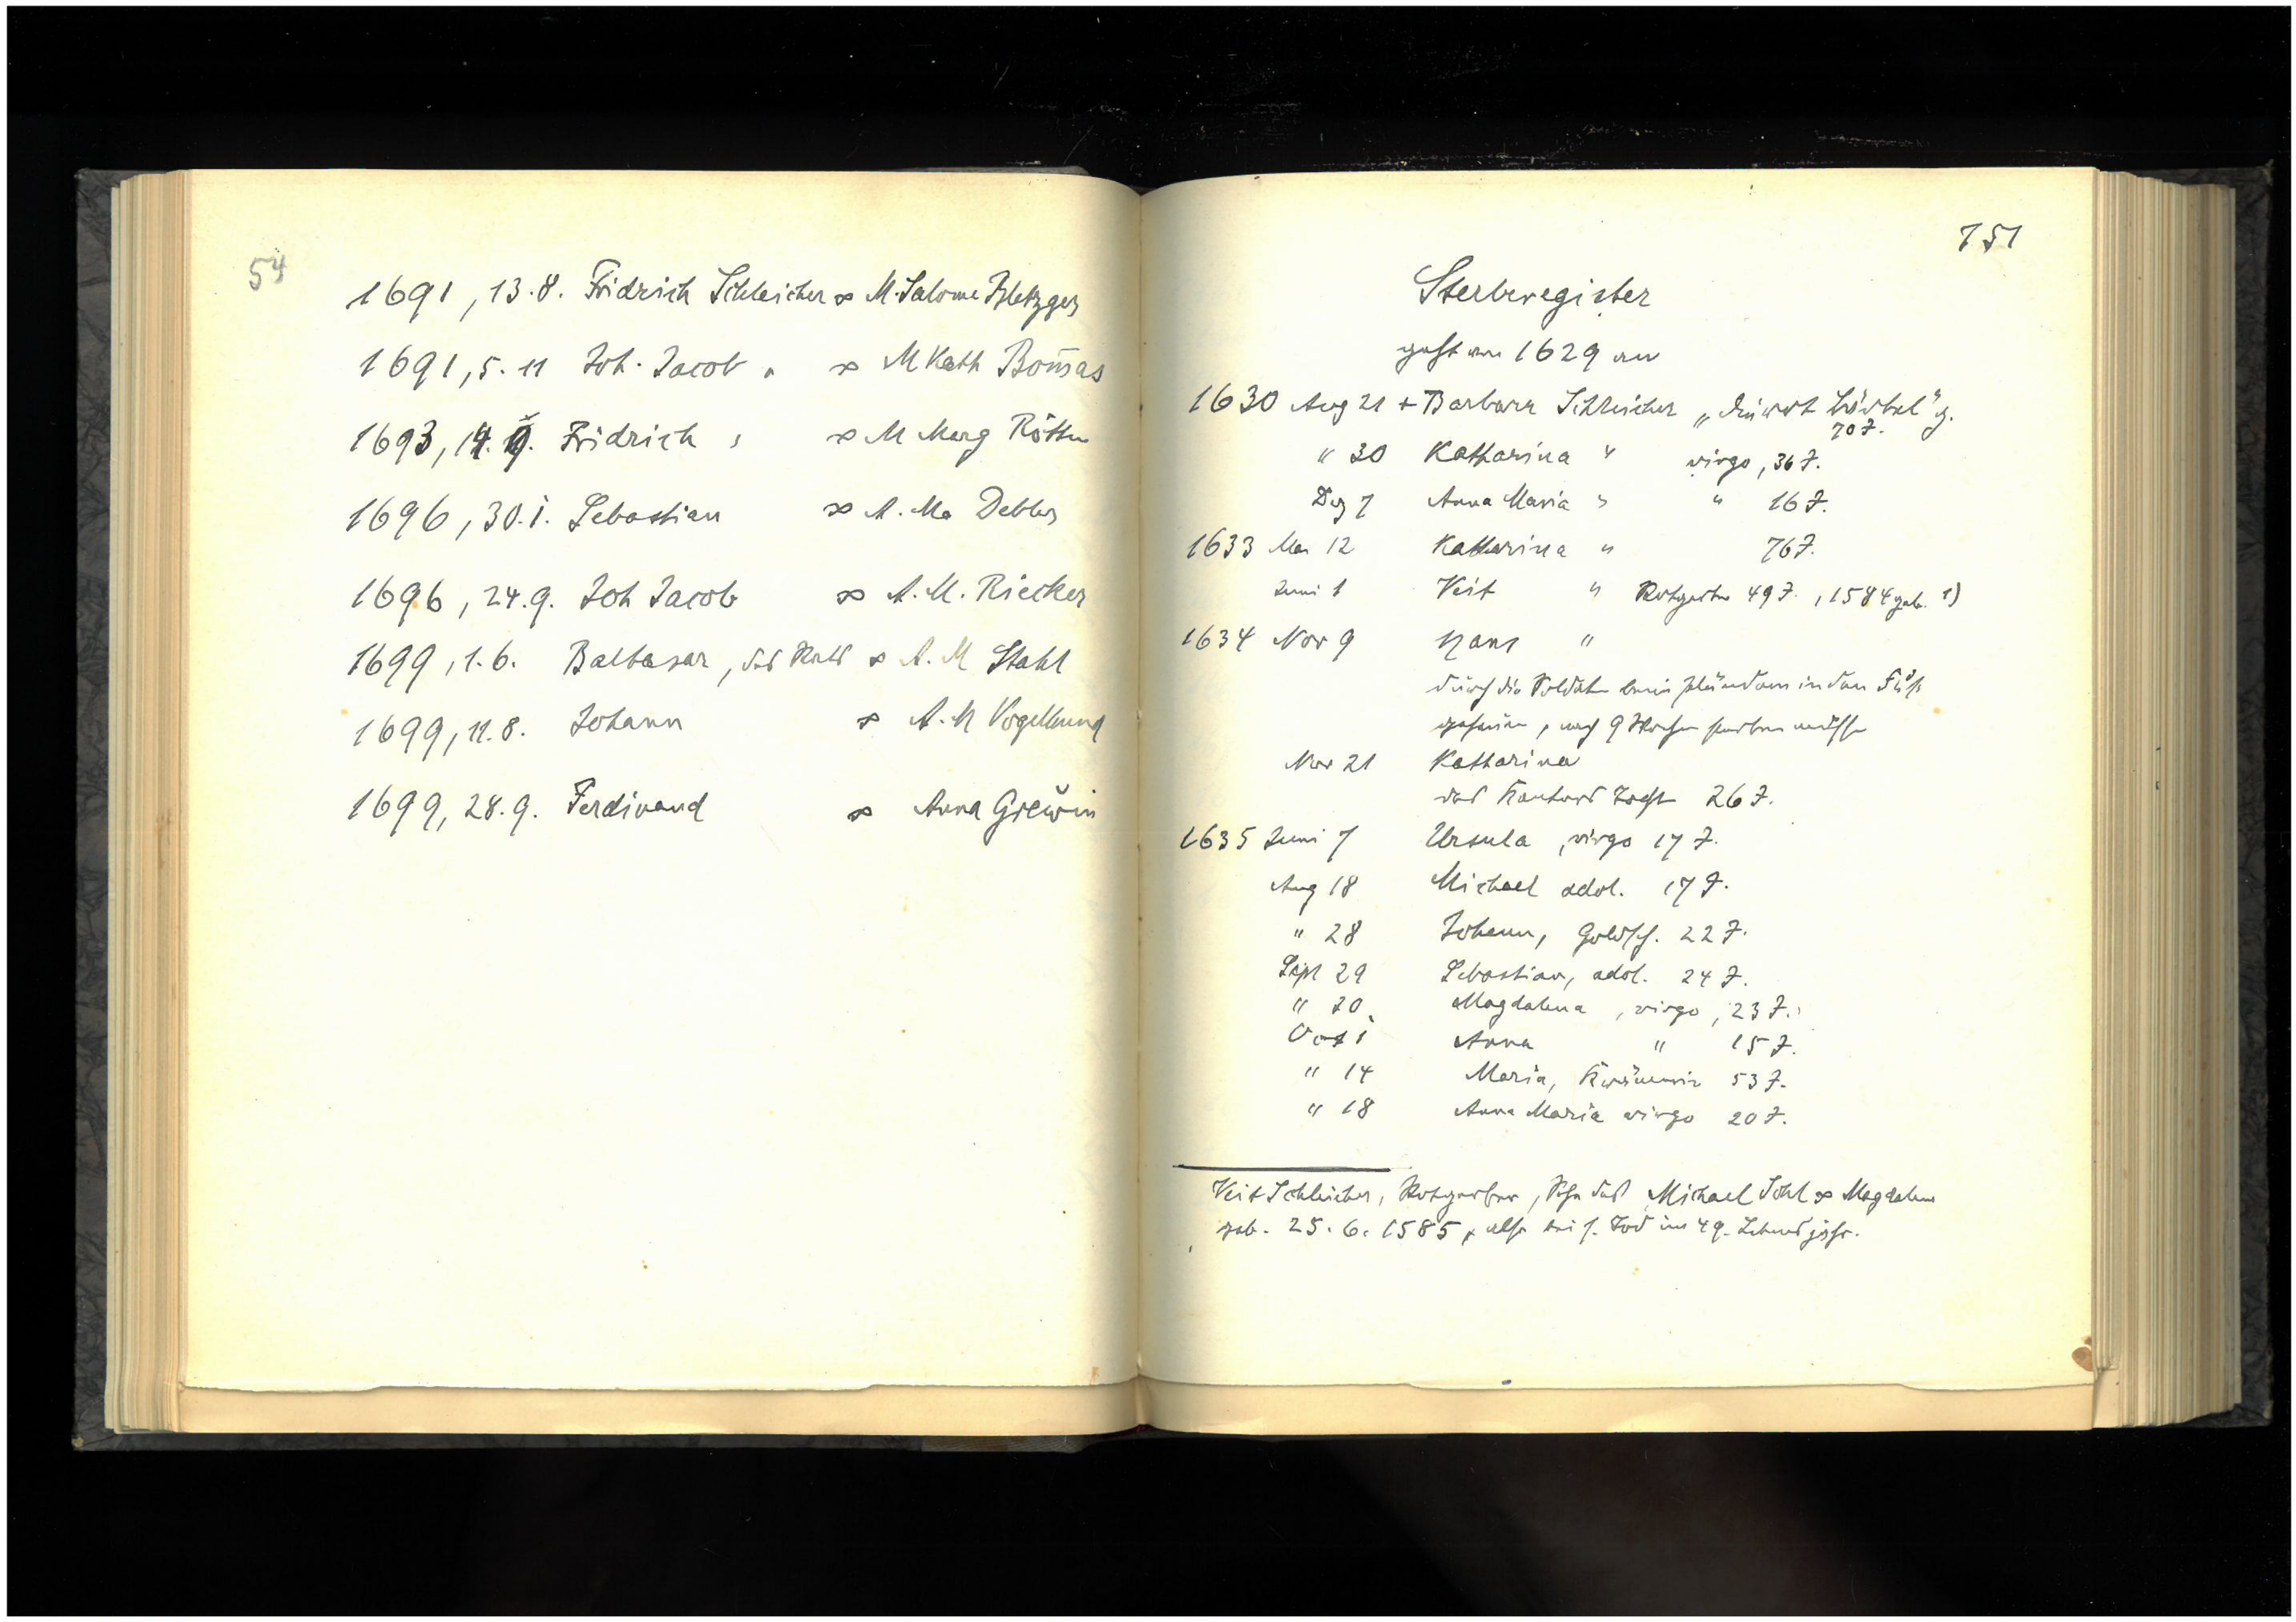 54
1691, 13.8. Fridrich Schleicher ∞ M. Salome Bletzger
1691, 5. 11 Joh. Jacob " ∞ M Kath Bom̄as
1693, 14. 9. Fridrich " ∞ M Marg
1696, 30.1. Sebastian ∞ A. Ma Debler
1696, 24.9. Joh Jacob ∞ A. M. Riecker
1699, 1.6. Balthasar, des Rats ∞ A. M Stahl
1699, 11.8. Johann ∞ A. M Vogelhund
1699, 28.9. Ferdinand ∞ Anna Grewin
751
Sterberegister
geht von 1629 an
1630 Aug 21 + Barbara Schleicher
70 J.
" 30 Katharina " virgo, 36 J.
Dez 7 Anna Maria " " 16 J.
1633 12 Katharina " 76 J.
Juni 1 Veit " Rotgerber 49 J., 1584 geb. 1)
1634 Nov 9 Hans "
durch die Soldaten beim plündern in den Fuß
gehauen, nach 9 Wochen sterben müssen
Nov 21 Katharina
des Kantors Tocht 26 J.
1635 Juni 7 Ursula, virgo 17 J.
Aug 18 Michael adol. 17 J.
" 28 Johann, Goldsch. 22 J.
Sept 29 Sebastian, adol. 24 J.
" 30 Magdalena, virgo, 23 J.
Oct 1 Anna " 15 J.
" 14 Maria, Krämerin 53 J.
" 18 Anna Maria virgo 20 J.
Veit Schleicher, Rotgerber, Sohn des Michael Schl ∞ Magdalena
geb. 25.6.1585, also bei s. Tod im 49. Lebensjahr.